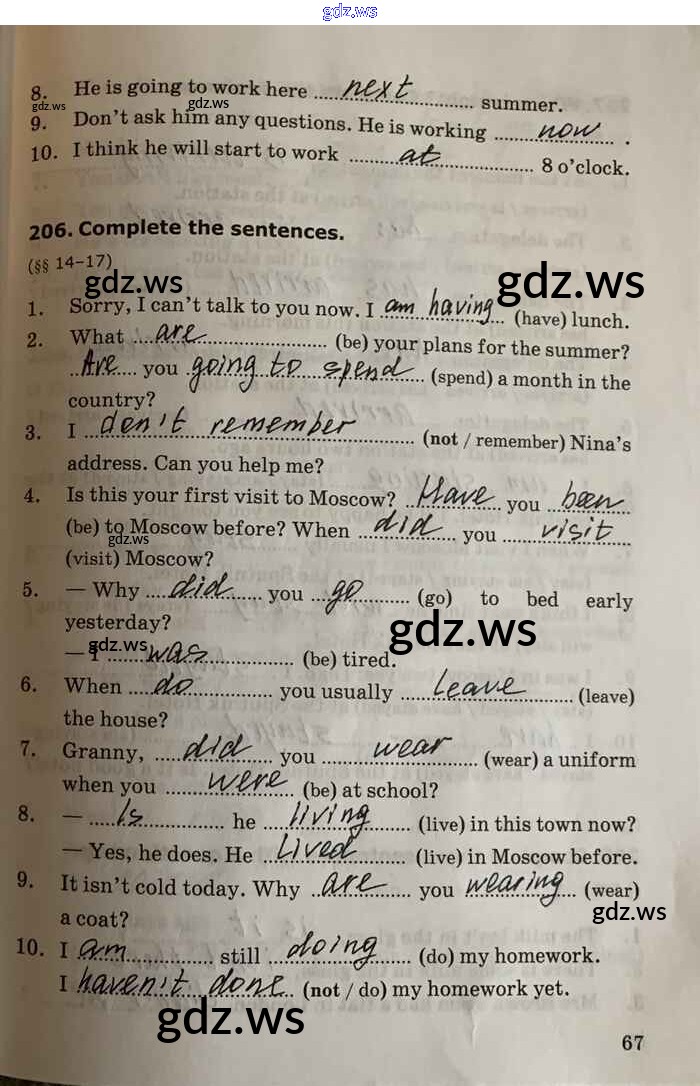 gdz.ws
8. He is going to work here next summer.
gdz.ws gdz.ws
9. Don't ask him any questions. He is working now.
10. I think he will start to work at 8 o'clock.
206. Complete the sentences.
(§§ 14–17)
gdz.ws gdz.ws
1. Sorry, I can't talk to you now. I am having (have) lunch.
2. What are (be) your plans for the summer?
Are you going to spend (spend) a month in the
country?
3. I don't remember (not / remember) Nina's
address. Can you help me?
4. Is this your first visit to Moscow? Have you been
(be) to Moscow before? When did you visit
gdz.ws
(visit) Moscow?
5. — Why did you go (go) to bed early
yesterday?
gdz.ws gdz.ws
— I was (be) tired.
6. When do you usually leave (leave)
the house?
7. Granny, did you wear (wear) a uniform
when you were (be) at school?
8. — Is he living (live) in this town now?
— Yes, he does. He lived (live) in Moscow before.
9. It isn't cold today. Why are you wearing (wear)
a coat?
gdz.ws
10. I am still doing (do) my homework.
I haven't done (not / do) my homework yet.
gdz.ws
67